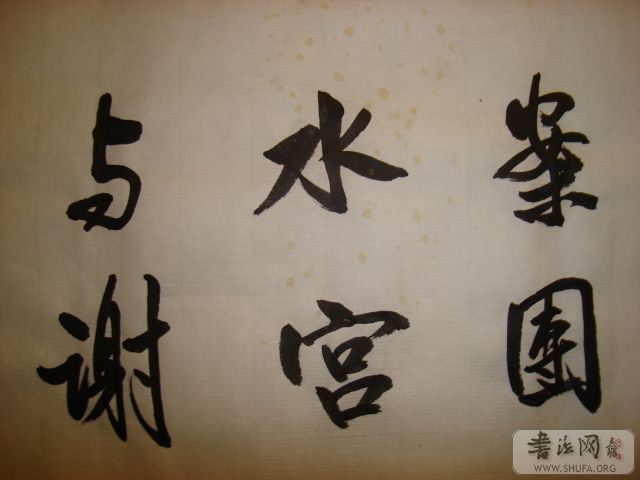 案團
水宫
与谢
書法网
WWW.SHUFA.ORG